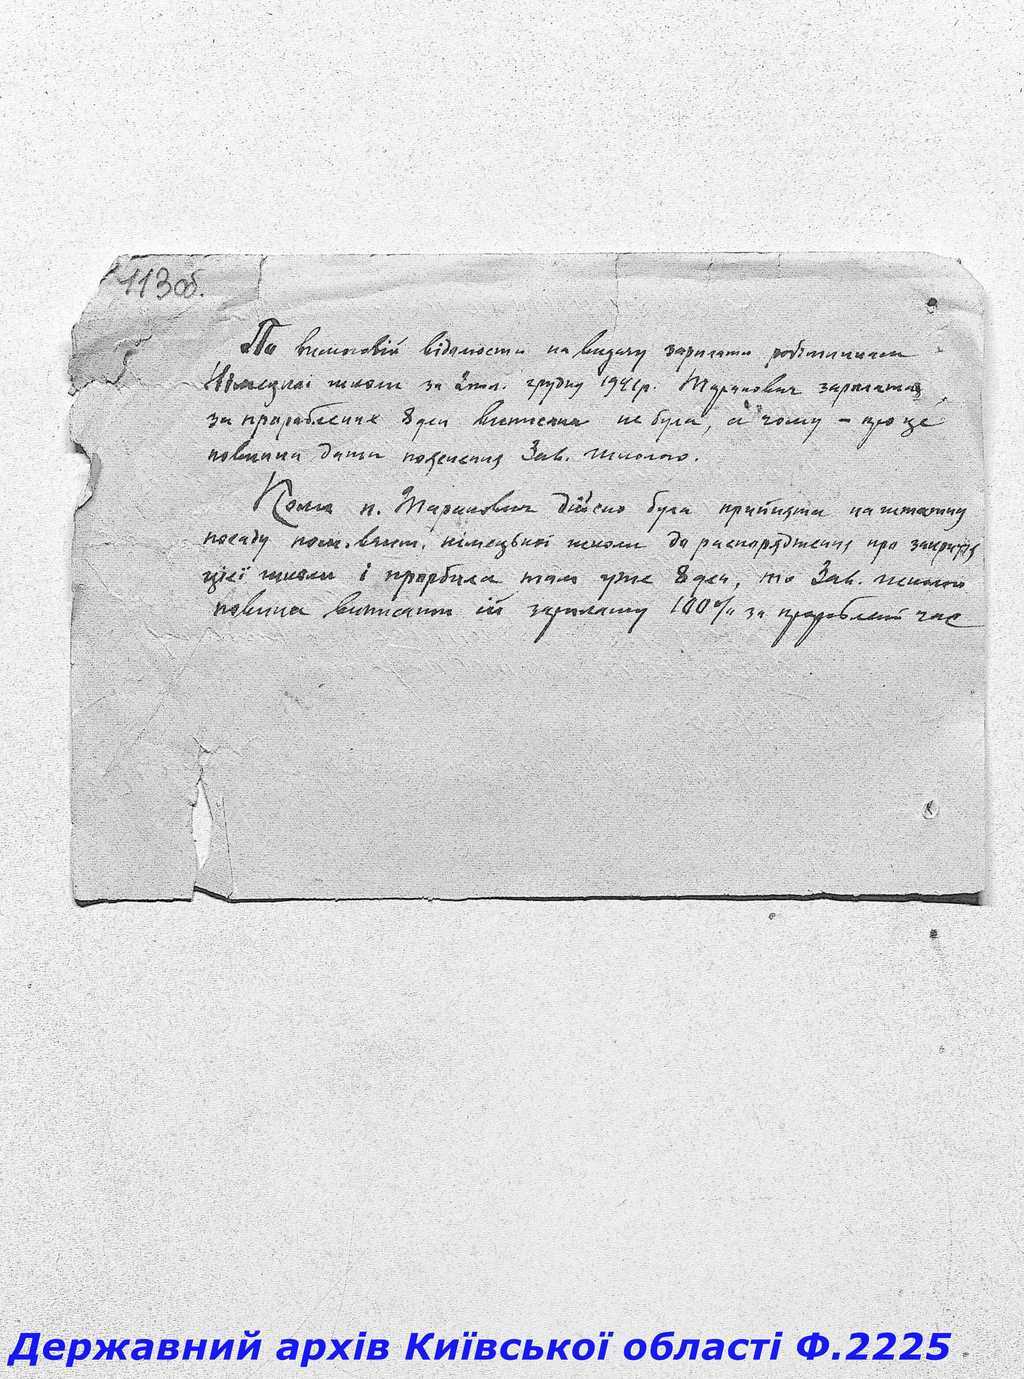 113 об.
По вимоговій відомости на видачу зарплати робітникам
Німецької школи за 2 пол. грудня 1941р. зарплата
за проработлених 8 ден виписана не була, а чому – про це
повинна дати пояснення Зав. школою.
Коли п. дійсно була прийнята на штатну
посаду німецької школи до распорядження про закриття
цієї школи і проробила там уже 8 ден, то Зав. школою
повина виписати їй зарплату 100% за пророблений час
Державний архів Київської області Ф.2225